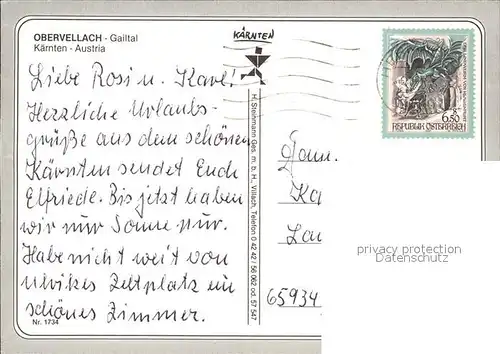 OBERVELLACH - Gailtal
Kärnten - Austria
KÄRNTEN
Liebe Rosi u. Karl!
Herzliche Urlaubs-
grüße aus dem schönen
Kärnten sendet Euch
Elfriede. Bis jetzt haben
wir nur Sonne pur.
Habe nicht weit von
Ulrikes Zeltplatz ein
schönes Zimmer.
Nr. 1734
H. Stiehmann Ges. m. b. H., Villach, Telefon 0 42 42 / 56 062 od. 57 547
6.50
REPUBLIK ÖSTERREICH
Fam.
Ka
Lau
65934
privacy protection
Datenschutz